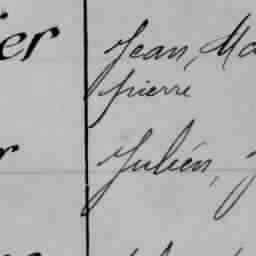 er Jean, Ma
pierre
r Julién, J